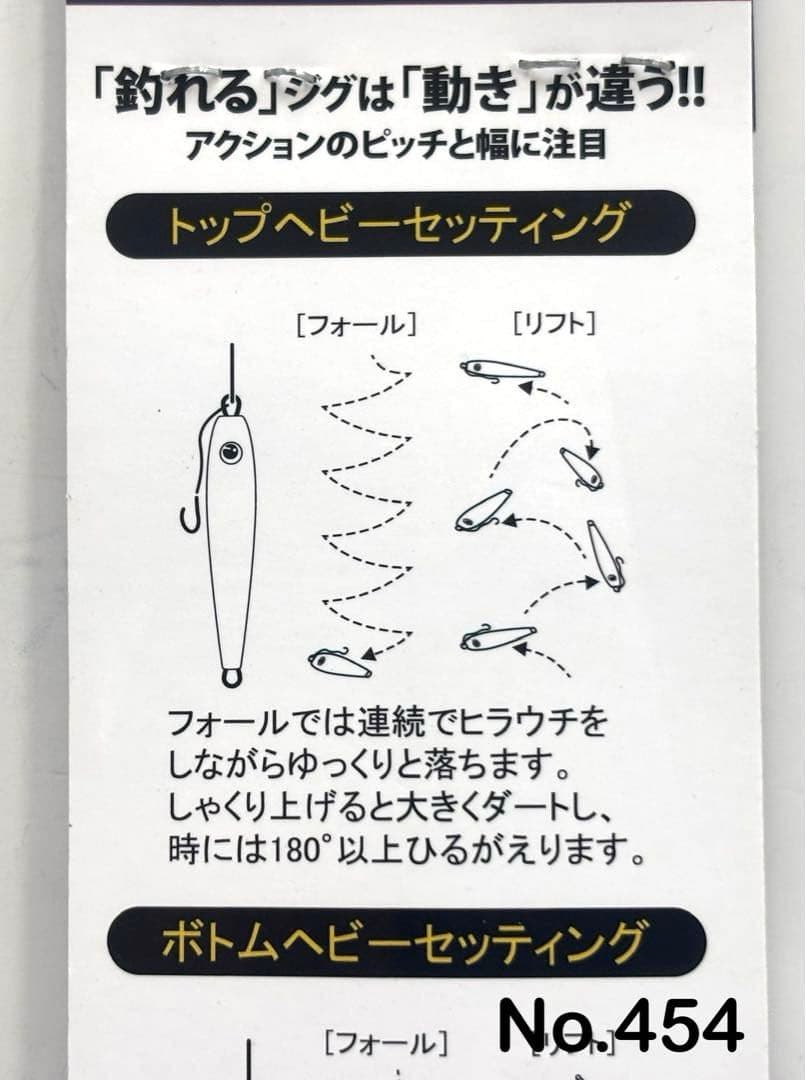 「釣れる」ジグは「動き」が違う!!
アクションのピッチと幅に注目
トップヘビーセッティング
[フォール] [リフト]
フォールでは連続でヒラウチを
しながらゆっくりと落ちます。
しゃくり上げると大きくダートし、
時には180°以上ひるがえります。
ボトムヘビーセッティング
[フォール] [リフト]
No.454